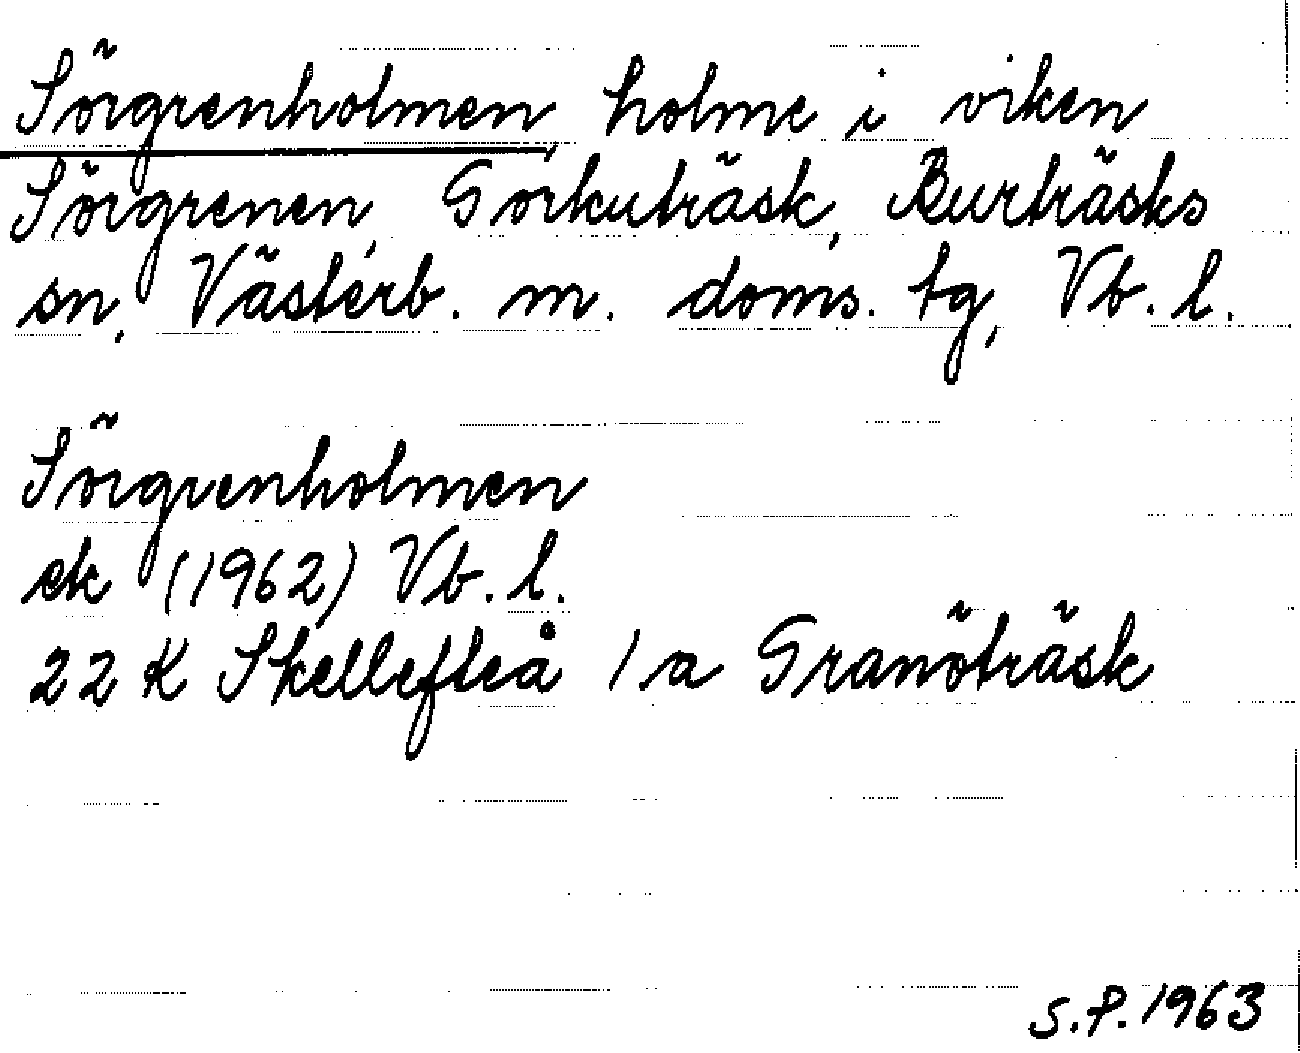 Sörgrenholmen, holme i viken
Sörgrenen, Gorkuträsk, Burträsks
sn, Västerb. m. doms. tg, Vb. l.
Sörgrenholmen
ek (1962) Vb. l.
22 K Skellefteå 1 a Granöträsk
S.P. 1963